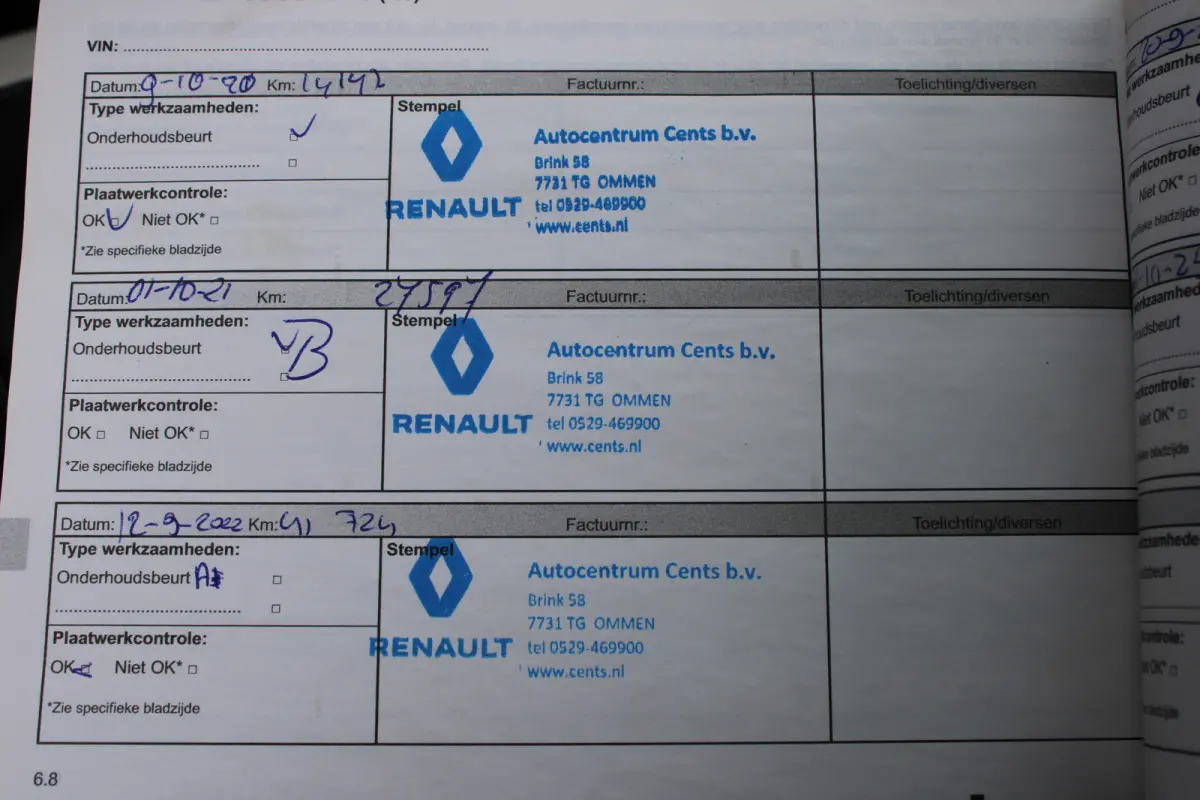 VIN:
Datum: 9-10-20 Km: 14142 Factuurnr.: Toelichting/diversen
Type werkzaamheden:
Onderhoudsbeurt
Stempel
RENAULT
Autocentrum Cents b.v.
Brink 58
7731 TG OMMEN
tel 0529-469900
www.cents.nl
Plaatwerkcontrole:
OK Niet OK*
*Zie specifieke bladzijde
Datum: 01-10-21 Km: 27597 Factuurnr.: Toelichting/diversen
Type werkzaamheden:
Onderhoudsbeurt B
Stempel
RENAULT
Autocentrum Cents b.v.
Brink 58
7731 TG OMMEN
tel 0529-469900
www.cents.nl
Plaatwerkcontrole:
OK Niet OK*
*Zie specifieke bladzijde
Datum: 12-9-2022 Km: 41 724 Factuurnr.: Toelichting/diversen
Type werkzaamheden:
Onderhoudsbeurt A
Stempel
RENAULT
Autocentrum Cents b.v.
Brink 58
7731 TG OMMEN
tel 0529-469900
www.cents.nl
Plaatwerkcontrole:
OK Niet OK*
*Zie specifieke bladzijde
6.8
Niet OK*